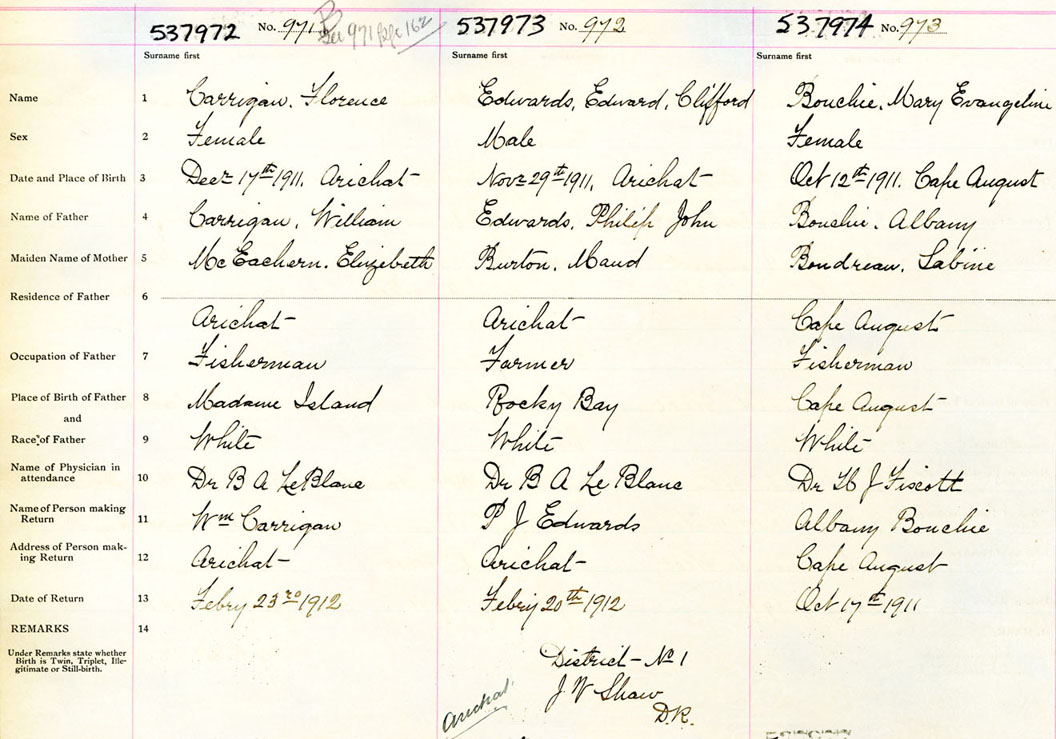 537972 No. 971 B 537973 No. 972 537974 No. 973
See 971 page 162
Surname first Surname first Surname first
Name 1 Carrigan, Florence Edwards, Edward, Clifford Bouchie, Mary Evangeline
Sex 2 Female Male Female
Date and Place of Birth 3 Decr 17th 1911, Arichat Novr 29th 1911, Arichat Oct 12th 1911. Cape August
Name of Father 4 Carrigan, William Edwards, Philip John Bouchie, Albany
Maiden Name of Mother 5 McEachern, Elizebeth Burton, Maud Boudreau, Sabine
Residence of Father 6
Arichat Arichat Cape August
Occupation of Father 7 Fisherman Farmer Fisherman
Place of Birth of Father 8 Madame Island Rocky Bay Cape August
and
Race of Father 9 White White White
Name of Physician in
attendance 10 Dr B A LeBlanc Dr B A Le Blanc Dr J Fiscott
Name of Person making
Return 11 Wm Carrigan P J Edwards Albany Bouchie
Address of Person mak-
ing Return 12 Arichat Arichat Cape August
Date of Return 13 Febry 23rd 1912 Febry 20th 1912 Oct 17th 1911
REMARKS 14
Under Remarks state whether
Birth is Twin, Triplet, Ille-
gitimate or Still-birth.
District - No 1
J W Shaw
D.R.
Arichat.